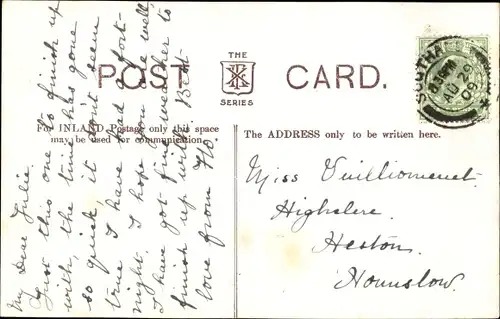 THE
POST CARD.
SERIES
For INLAND Postage only this space
may be used for communication.
The ADDRESS only to be written here.
My Dear Julie.
Just this one to finish up
with, the time has gone
so quick it don't seem
time I have had a fort-
night. I hope you are well
I have got fine weather to
finish up with. Best
love from
Miss Vuilliomenet.
Highclere.
Heston.
Hounslow.
SOUTHALL
8.15 PM
AU 29
09